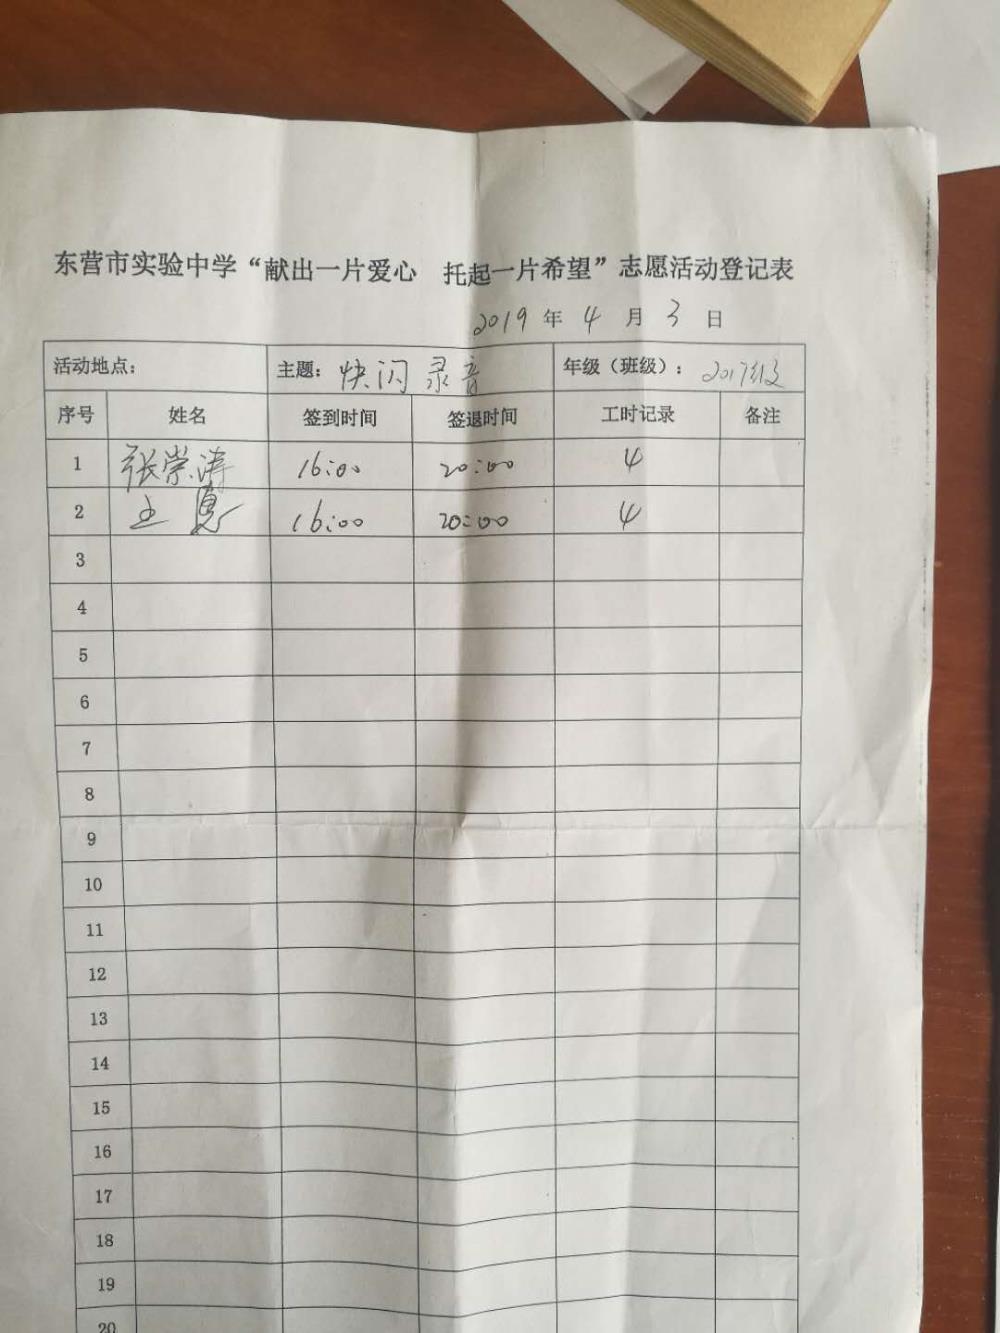 东营市实验中学“献出一片爱心 托起一片希望”志愿活动登记表
2019 年 4 月 3 日
活动地点： 主题：快闪录音 年级（班级）：2017级
序号 姓名 签到时间 签退时间 工时记录 备注
1 张崇涛 16:00 20:00 4
2 王 16:00 20:00 4
3
4
5
6
7
8
9
10
11
12
13
14
15
16
17
18
19
20